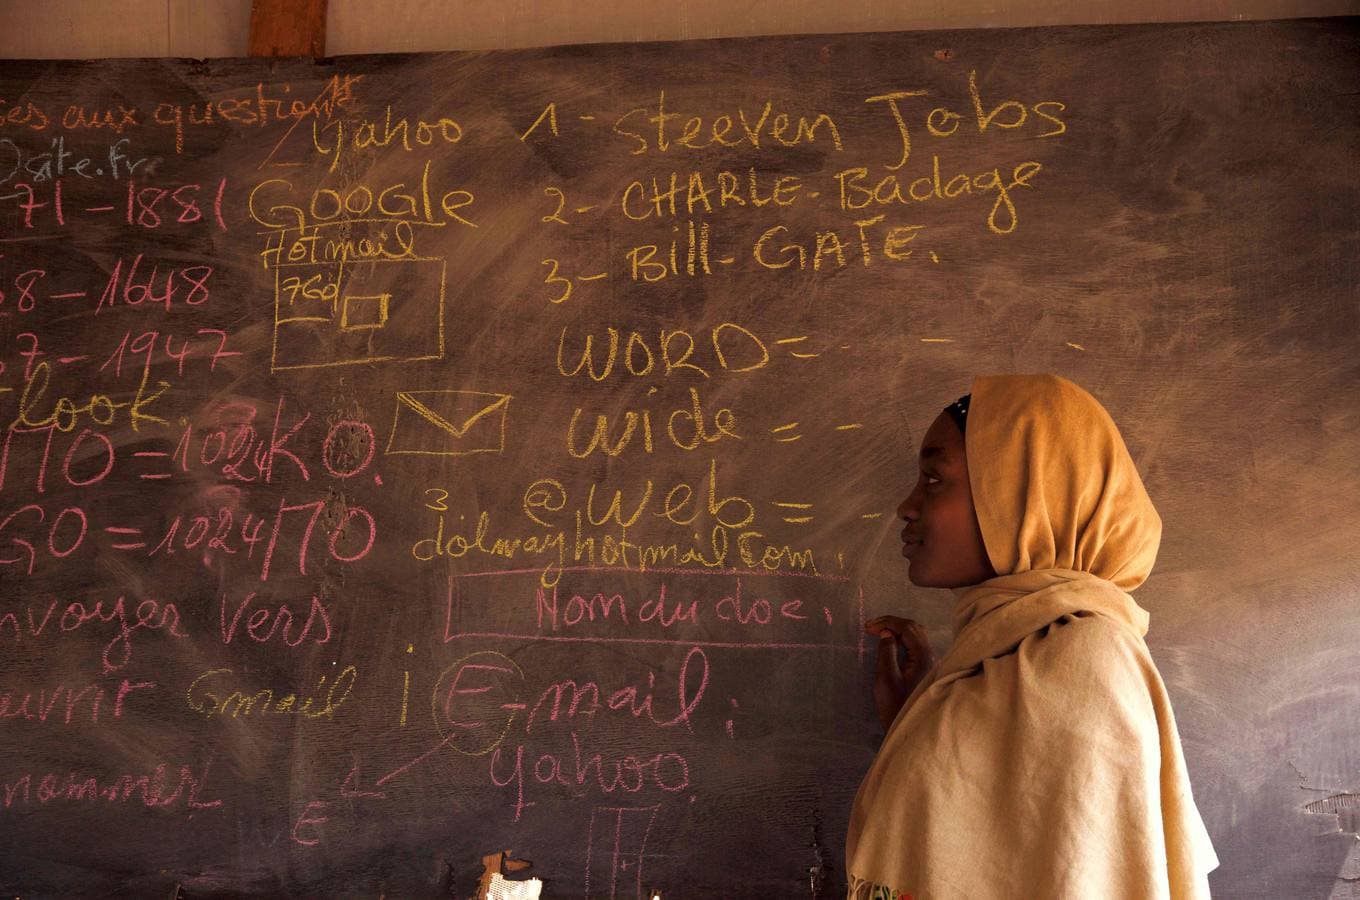 ses aux questions
Osite.fr
71 - 1881
8 - 1648
7 - 1947
look.
MO = 1024KO.
GO = 1024MO
nvoyer Vers
ouvrir Gmail
nommer
E
Yahoo
Google
Hotmail
760
1 - Steeven Jobs
2 - CHARLE - Badage
3 - Bill - GATE.
WORD = - - -
wide = -
3 @ Web = -
dolmayhotmail.com.
Nom du doc.
E-mail;
yahoo